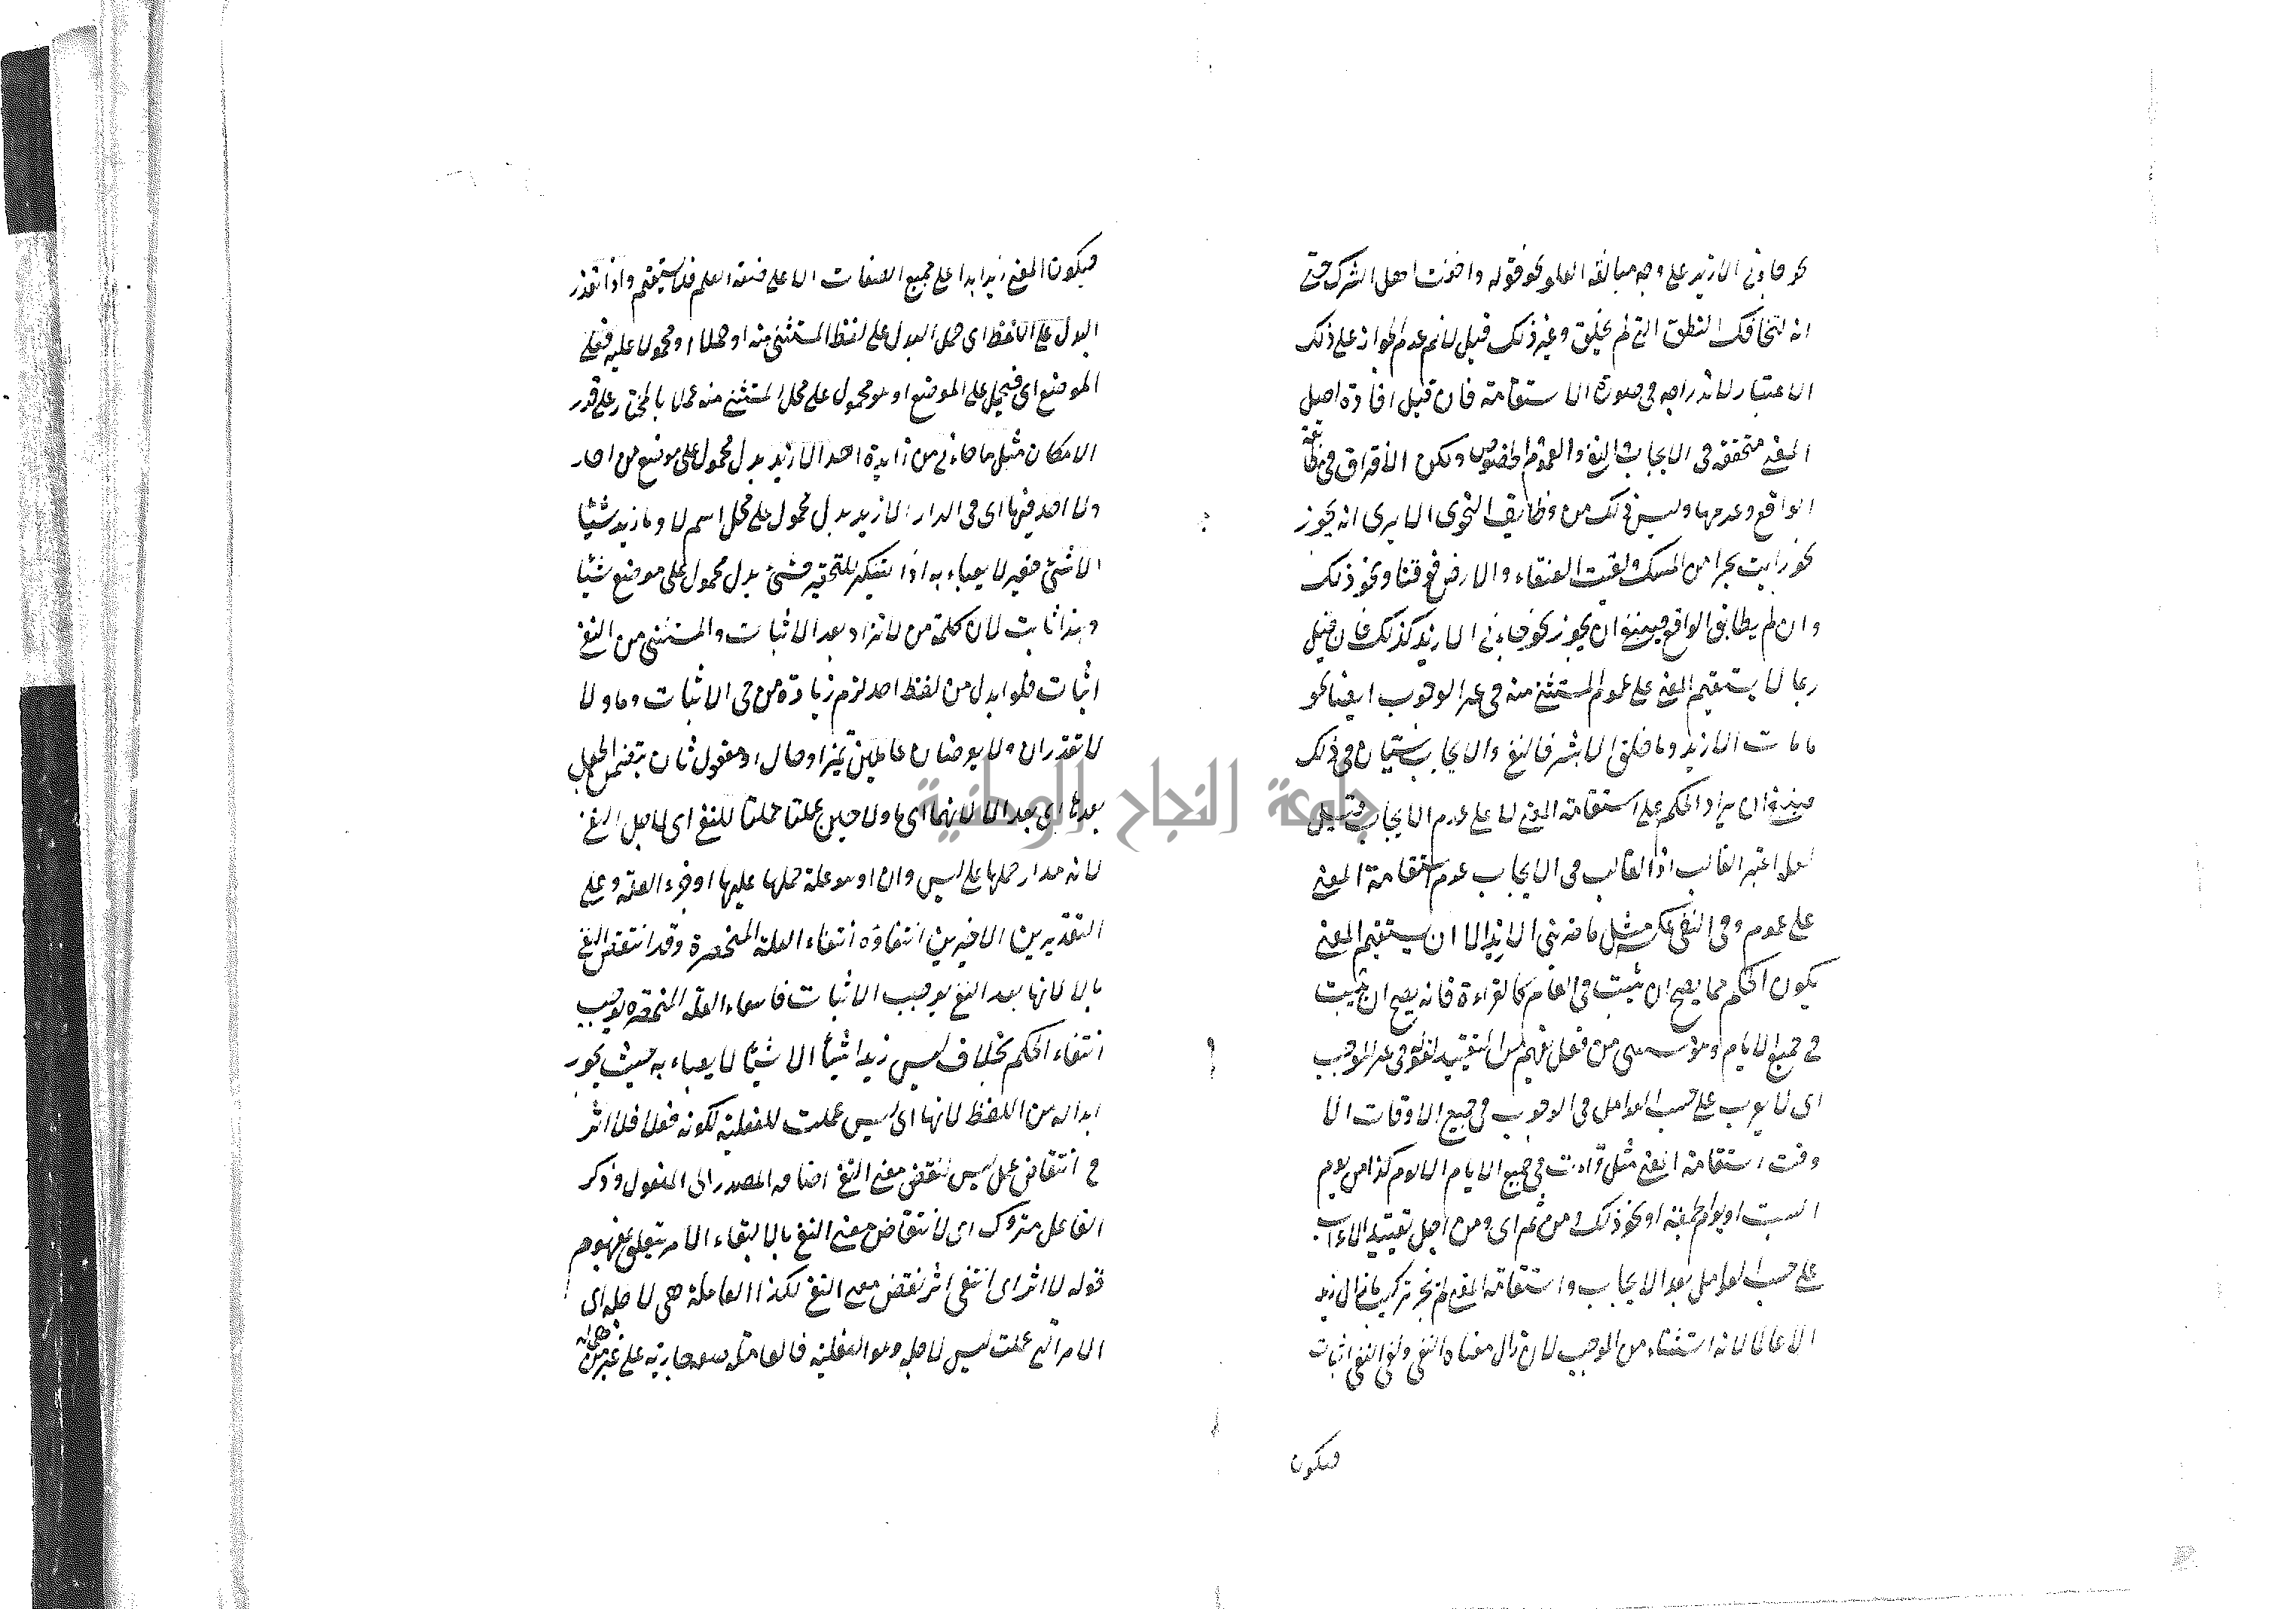 نحو جاءنى الا زيد على وجه مبالغة الغلو نحو قوله واخفت اهل الشرك حتى
انه لتخافك النطق التى لم تخلق وغير ذلك قيل لانم عدم الجواز على ذلك
الاعتبار لاندراجه فى صورة الاستقامة فان قيل افادة اصل
المعنى متحققة فى الايجاب والنفى والعموم والخصوص ولكن الافتراق فى مطابقة
الواقع وعدمها وليس ذلك من وظايف النحوى الا يرى انه يجوز
نحو رايت بحرا من المسك ولقيت العنقاء والارض فوقنا ونحو ذلك
وان لم يطابق الواقع فينبغى ان يجوز نحو جاءنى الا زيد كذلك فان قيل
ربما لا يستقيم المعنى على عموم المستثنى منه فى غير الوجوب ايضا نحو
ما مات الا زيد وما خلق الا بشر فالنفى والايجاب سيان فى ذلك
فينبغى ان يراد الحكم على استقامة المعنى لا على عدم الايجاب قيل
لعل اعتبر الغالب اذ الغالب فى الايجاب عدم استقامة المعنى
على عموم وفى النفى عكس مثل ما ضربنى الا زيد الا ان يستقيم المعنى
يكون الحكم مما يصح ان يثبت فى العام كالقراءة فانه يصح ان يثبت
فى جميع الايام وهو مستثنى من فعل يفهم من التقييد بقوله فى غير الموجب
اى لا يعرب على حسب العوامل فى الوجوب فى جميع الاوقات الا
وقت استقامة المعنى مثل قرات فى جميع الايام الا يوم كذا من يوم
السبت او يوم الجمعة او نحو ذلك ومن ثم اى ومن اجل تقييد الاعراب
على حسب العوامل بعد الايجاب واستقامة المعنى لم يجز تركيب ما زال زيد
الا عالما لانه استثناء من الموجب لان زال معناه النفى ونفى النفى اثبات
فيكون
فيكون المعنى زيد ابدا على جميع الصفات الا على صفة العلم فلا يستقيم واذا تعذر
البدل على اللفظ اى حمل البدل على لفظ المستثنى منه او حملا او محمولا عليه فعلى
الموضع اى فيحمل على الموضع او هو محمول على محل المستثنى منه عملا بالمختار على قدر
الامكان مثل ما جاءنى من زايدة احد الا زيد بدل محمول على موضع من احد
ولا احد فيها اى فى الدار الا زيد بدل محمول على محل اسم لا وما زيد شيئا
الا شئ حقير لا يعباء به اذ التنكير للتحقير فشئ بدل محمول على موضع شيئا
وهذا ثابت لان كلمة من لا تزاد بعد الاثبات والمستثنى من النفى
اثبات فلو ابدل من لفظ احد لزم زيادة من فى الاثبات وما ولا
لا تقدران ولا يعرضان عاملين تميز او حال او مفعول ثان بتضمن الجعل
بعدها اى بعد الا لانهما اى ما ولا حين عملتا عملتا للنفى اى لاجل النفى
لانه مدار حملها على ليس وان او هو علة حملها عليها او جزء العلة وعلى
التقديرين الاخيرين انتفاؤه انتفاء العلة المنحصرة وقد انتقض النفى
بالا لانها بعد النفى يوجب الاثبات فانتفاء العلة المنحصرة يوجب
انتفاء الحكم بخلاف ليس زيدا شيئا الا شيئا لا يعباء به حيث يجوز
ابداله من اللفظ لانها اى ليس عملت للفعلية لكونه فعلا فلا اثر
فى انتقاض عمل ليس لنقض معنى النفى اضافة المصدر الى المفعول وذكر
الفاعل متروك اى لانتقاض معنى النفى بالا لبقاء الامر يتعلق بمفهوم
قوله لا اثر اى انتفى اثر نقض معنى النفى لكذا العاملة هى لاجله اى
الامر التى عملت ليس لاجله وهو الفعلية فالعاملة صفة جارية على غير من هى له
جامعة النجاح الوطنية